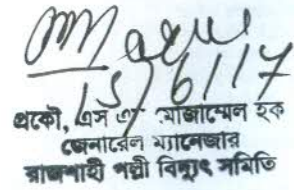 15/6/17
প্রকৌ, এস এ মোজাম্মেল হক
জেনারেল ম্যানেজার
রাজশাহী পল্লী বিদ্যুৎ সমিতি